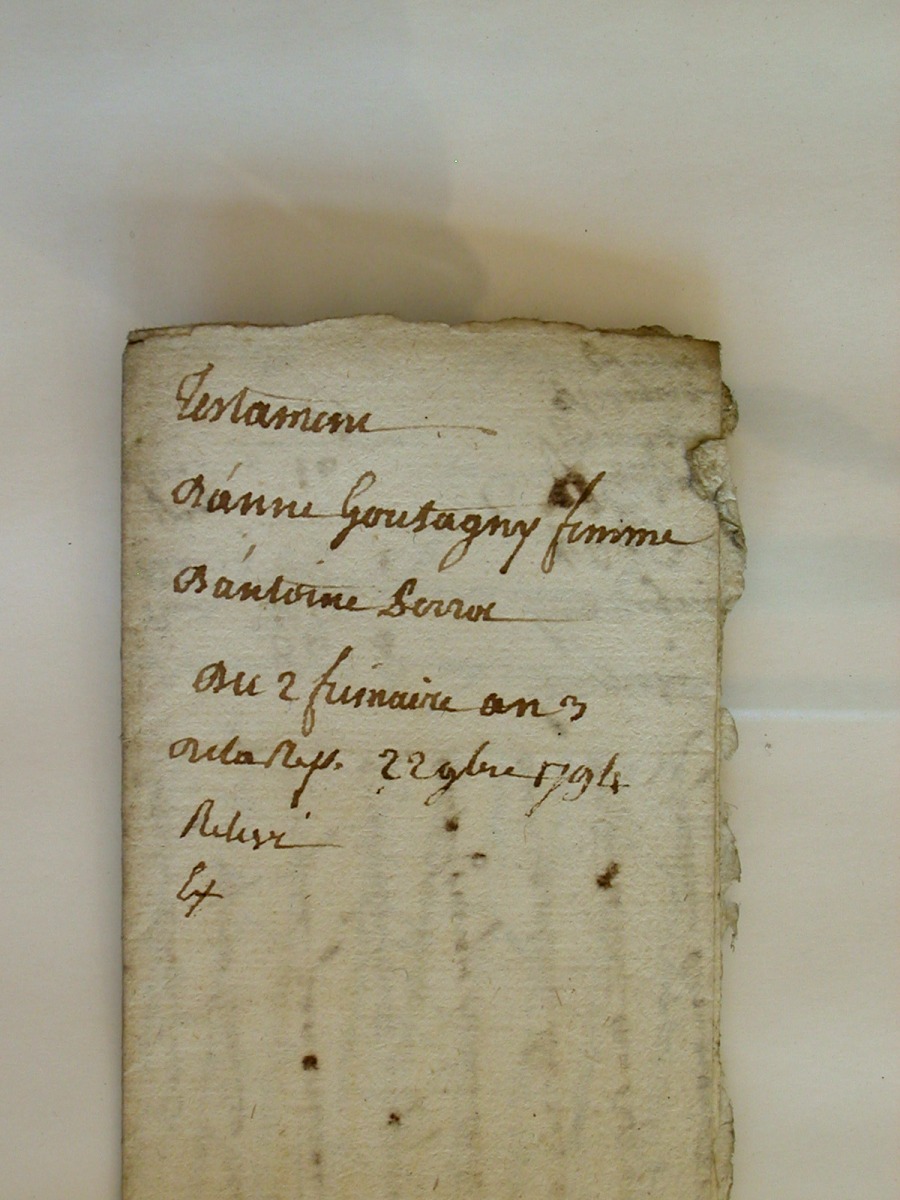 Testament
D'anne Goutagny femme
D'antoine Ferrot
Du 2 frimaire an 3
De la Rep. 22 9bre 1794
Ex